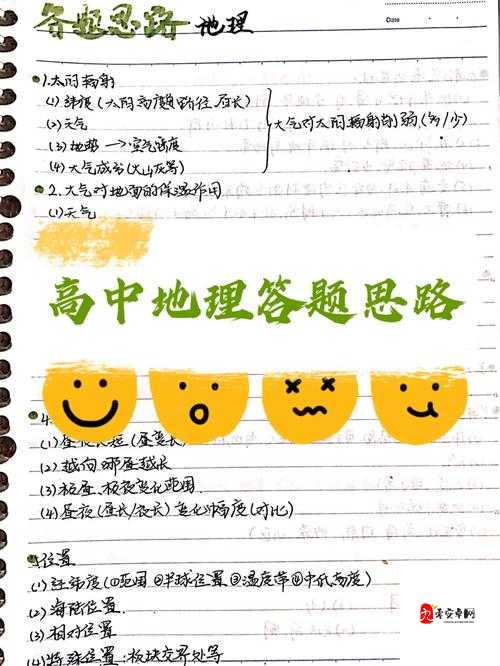 答题思路 地理
Date
1.太阳辐射
(1)纬度(太阳高度 路径 昼长)
(2)天气
大气对太阳辐射削弱(多/少)
(3)地势→空气密度
(4)大气成分(火山灰等)
2.大气对地面的保温作用
(1)天气
高中地理答题思路
4.
(1)昼夜长短
(2)越向哪昼越长
(3)极昼、极夜变化范围.
(4)昼夜(昼长/夜长)变化幅度(对比)
位置
(1)经纬度(①范围 ②半球位置 ③温度带 ④中低高度)
(2)海陆位置.
(3)相对位置
(4)特殊位置:板块交界处等